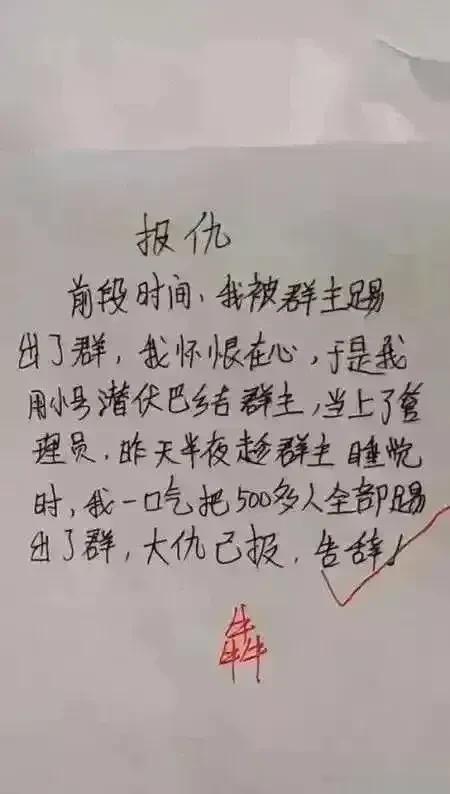 报仇
前段时间、我被群主踢
出了群，我怀恨在心，于是我
用小号潜伏巴结群主，当上了管
理员，昨天半夜趁群主睡觉
时，我一口气把500多人全部踢
出了群，大仇已报，告辞！
犇